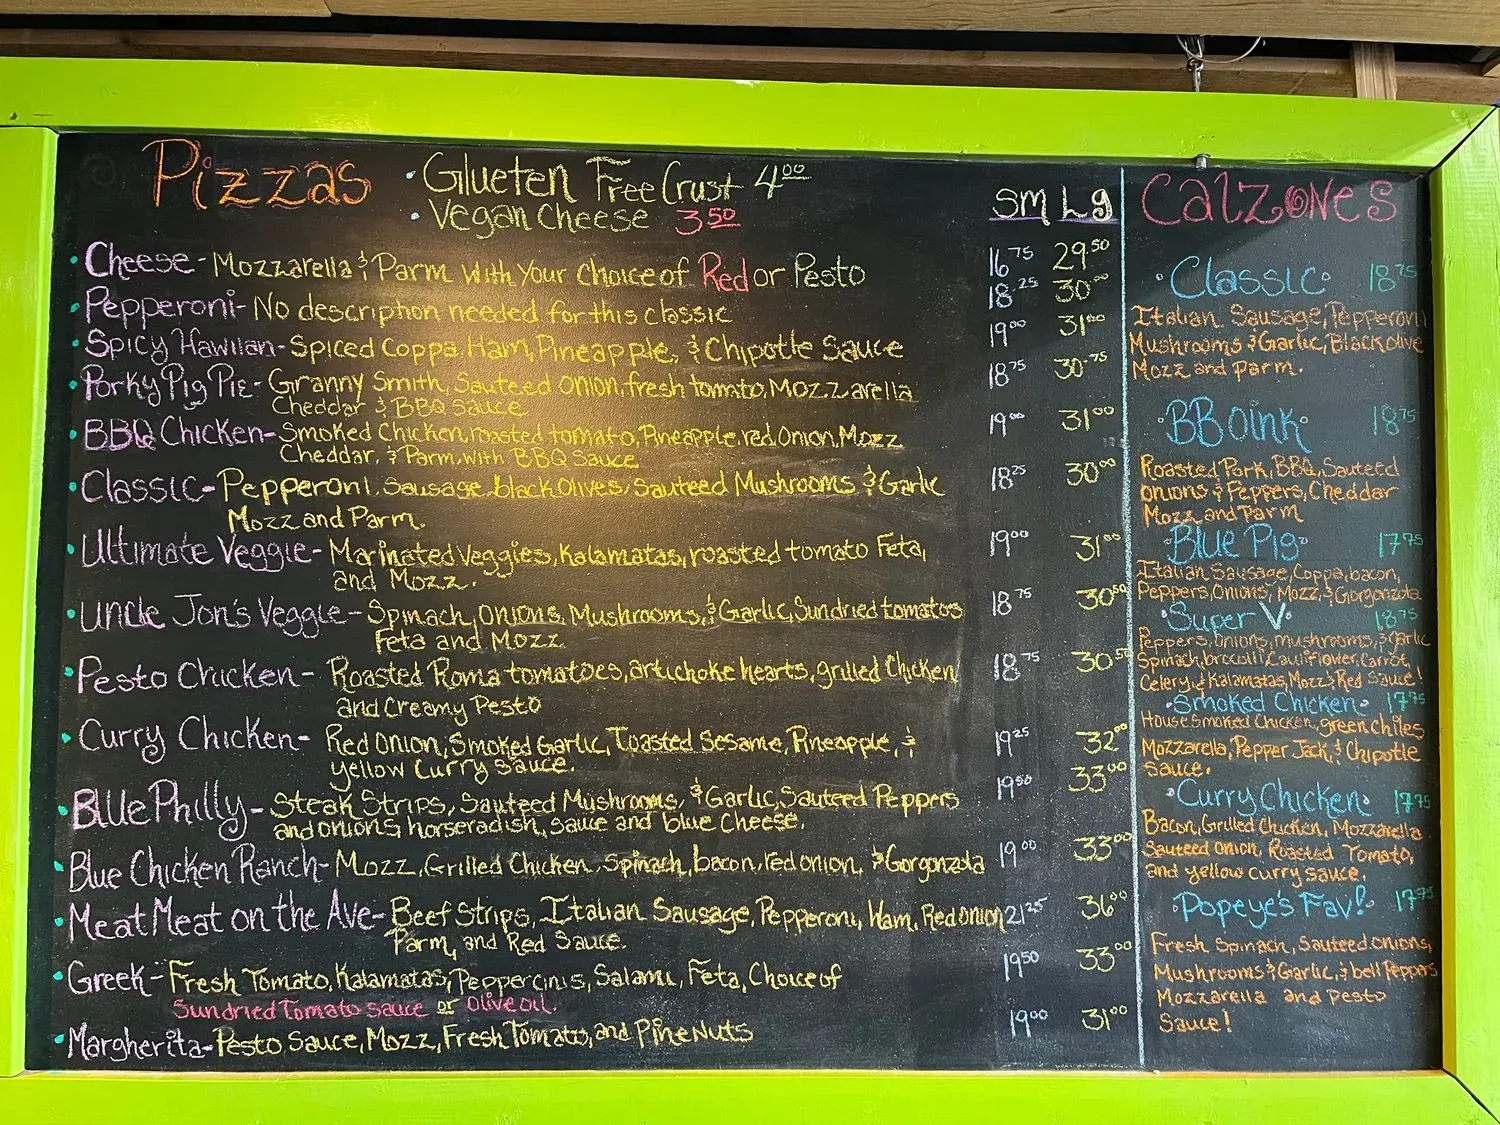 Pizzas
• Glueten Free Crust 4.00
• Vegan Cheese 3.50
Sm Lg
• Cheese - Mozzarella & Parm with your choice of Red or Pesto 16.75 29.50
• Pepperoni - No description needed for this classic 18.25 30.00
• Spicy Hawiian - Spiced Coppa, Ham, Pineapple, & Chipotle Sauce 19.00 31.00
• Porky Pig Pie - Granny Smith, Sauteed onion, fresh tomato, Mozzarella 18.75 30.75
Cheddar & BBQ Sauce
• BBQ Chicken - Smoked Chicken, roasted tomato, Pineapple, red onion, Mozz 19.00 31.00
Cheddar, & Parm, with BBQ Sauce
• Classic - Pepperoni, Sausage, Black Olives, Sauteed Mushrooms & Garlic 18.25 30.00
Mozz and Parm.
• Ultimate Veggie - Marinated Veggies, Kalamatas, roasted tomato Feta, 19.00 31.00
and Mozz.
• Uncle Jon's Veggie - Spinach, Onions, Mushrooms, & Garlic, Sundried tomatoes 18.75 30.50
Feta and Mozz
• Pesto Chicken - Roasted Roma tomatoes, artichoke hearts, grilled Chicken 18.75 30.50
and Creamy Pesto
• Curry Chicken - Red Onion, Smoked Garlic, Toasted Sesame, Pineapple, & 19.25 32.00
yellow Curry Sauce.
• Blue Philly - Steak Strips, Sauteed Mushrooms, & Garlic, Sauteed Peppers 19.50 33.00
and onions, horseradish, sauce and blue Cheese.
• Blue Chicken Ranch - Mozz, Grilled Chicken, Spinach, bacon, red onion, & Gorgonzola 19.00 33.00
• Meat Meat on the Ave - Beef Strips, Italian Sausage, Pepperoni, Ham, Red onion 21.25 36.00
Parm, and Red Sauce.
• Greek - Fresh Tomato, Kalamatas, Peppercinis, Salami, Feta, Choice of 19.50 33.00
Sundried Tomato sauce or Olive oil.
• Margherita - Pesto Sauce, Mozz, Fresh Tomato, and Pine Nuts 19.00 31.00
Calzones
• Classic • 18.75
Italian Sausage, Pepperoni
Mushrooms & Garlic, Black olive
Mozz and Parm.
• BBoink • 18.75
Roasted Pork, BBQ, Sauteed
onions & Peppers, Cheddar
Mozz and Parm
• Blue Pig • 17.75
Italian Sausage, Coppa, bacon,
Peppers, Onions, Mozz, & Gorgonzola
• Super V • 18.75
Peppers, Onions, mushrooms, & garlic
Spinach, broccoli, Cauliflower, Carrot,
Celery, & Kalamatas, Mozz & Red Sauce!
• Smoked Chicken • 17.75
House Smoked Chicken, green chiles
Mozzarella, Pepper Jack, & Chipotle
Sauce.
• Curry Chicken • 17.75
Bacon, Grilled Chicken, Mozzarella
Sauteed onion, Roasted Tomato,
and yellow curry sauce.
• Popeye's Fav! • 17.75
Fresh Spinach, Sauteed onions,
Mushrooms & Garlic, & bell Peppers
Mozzarella and pesto
Sauce!